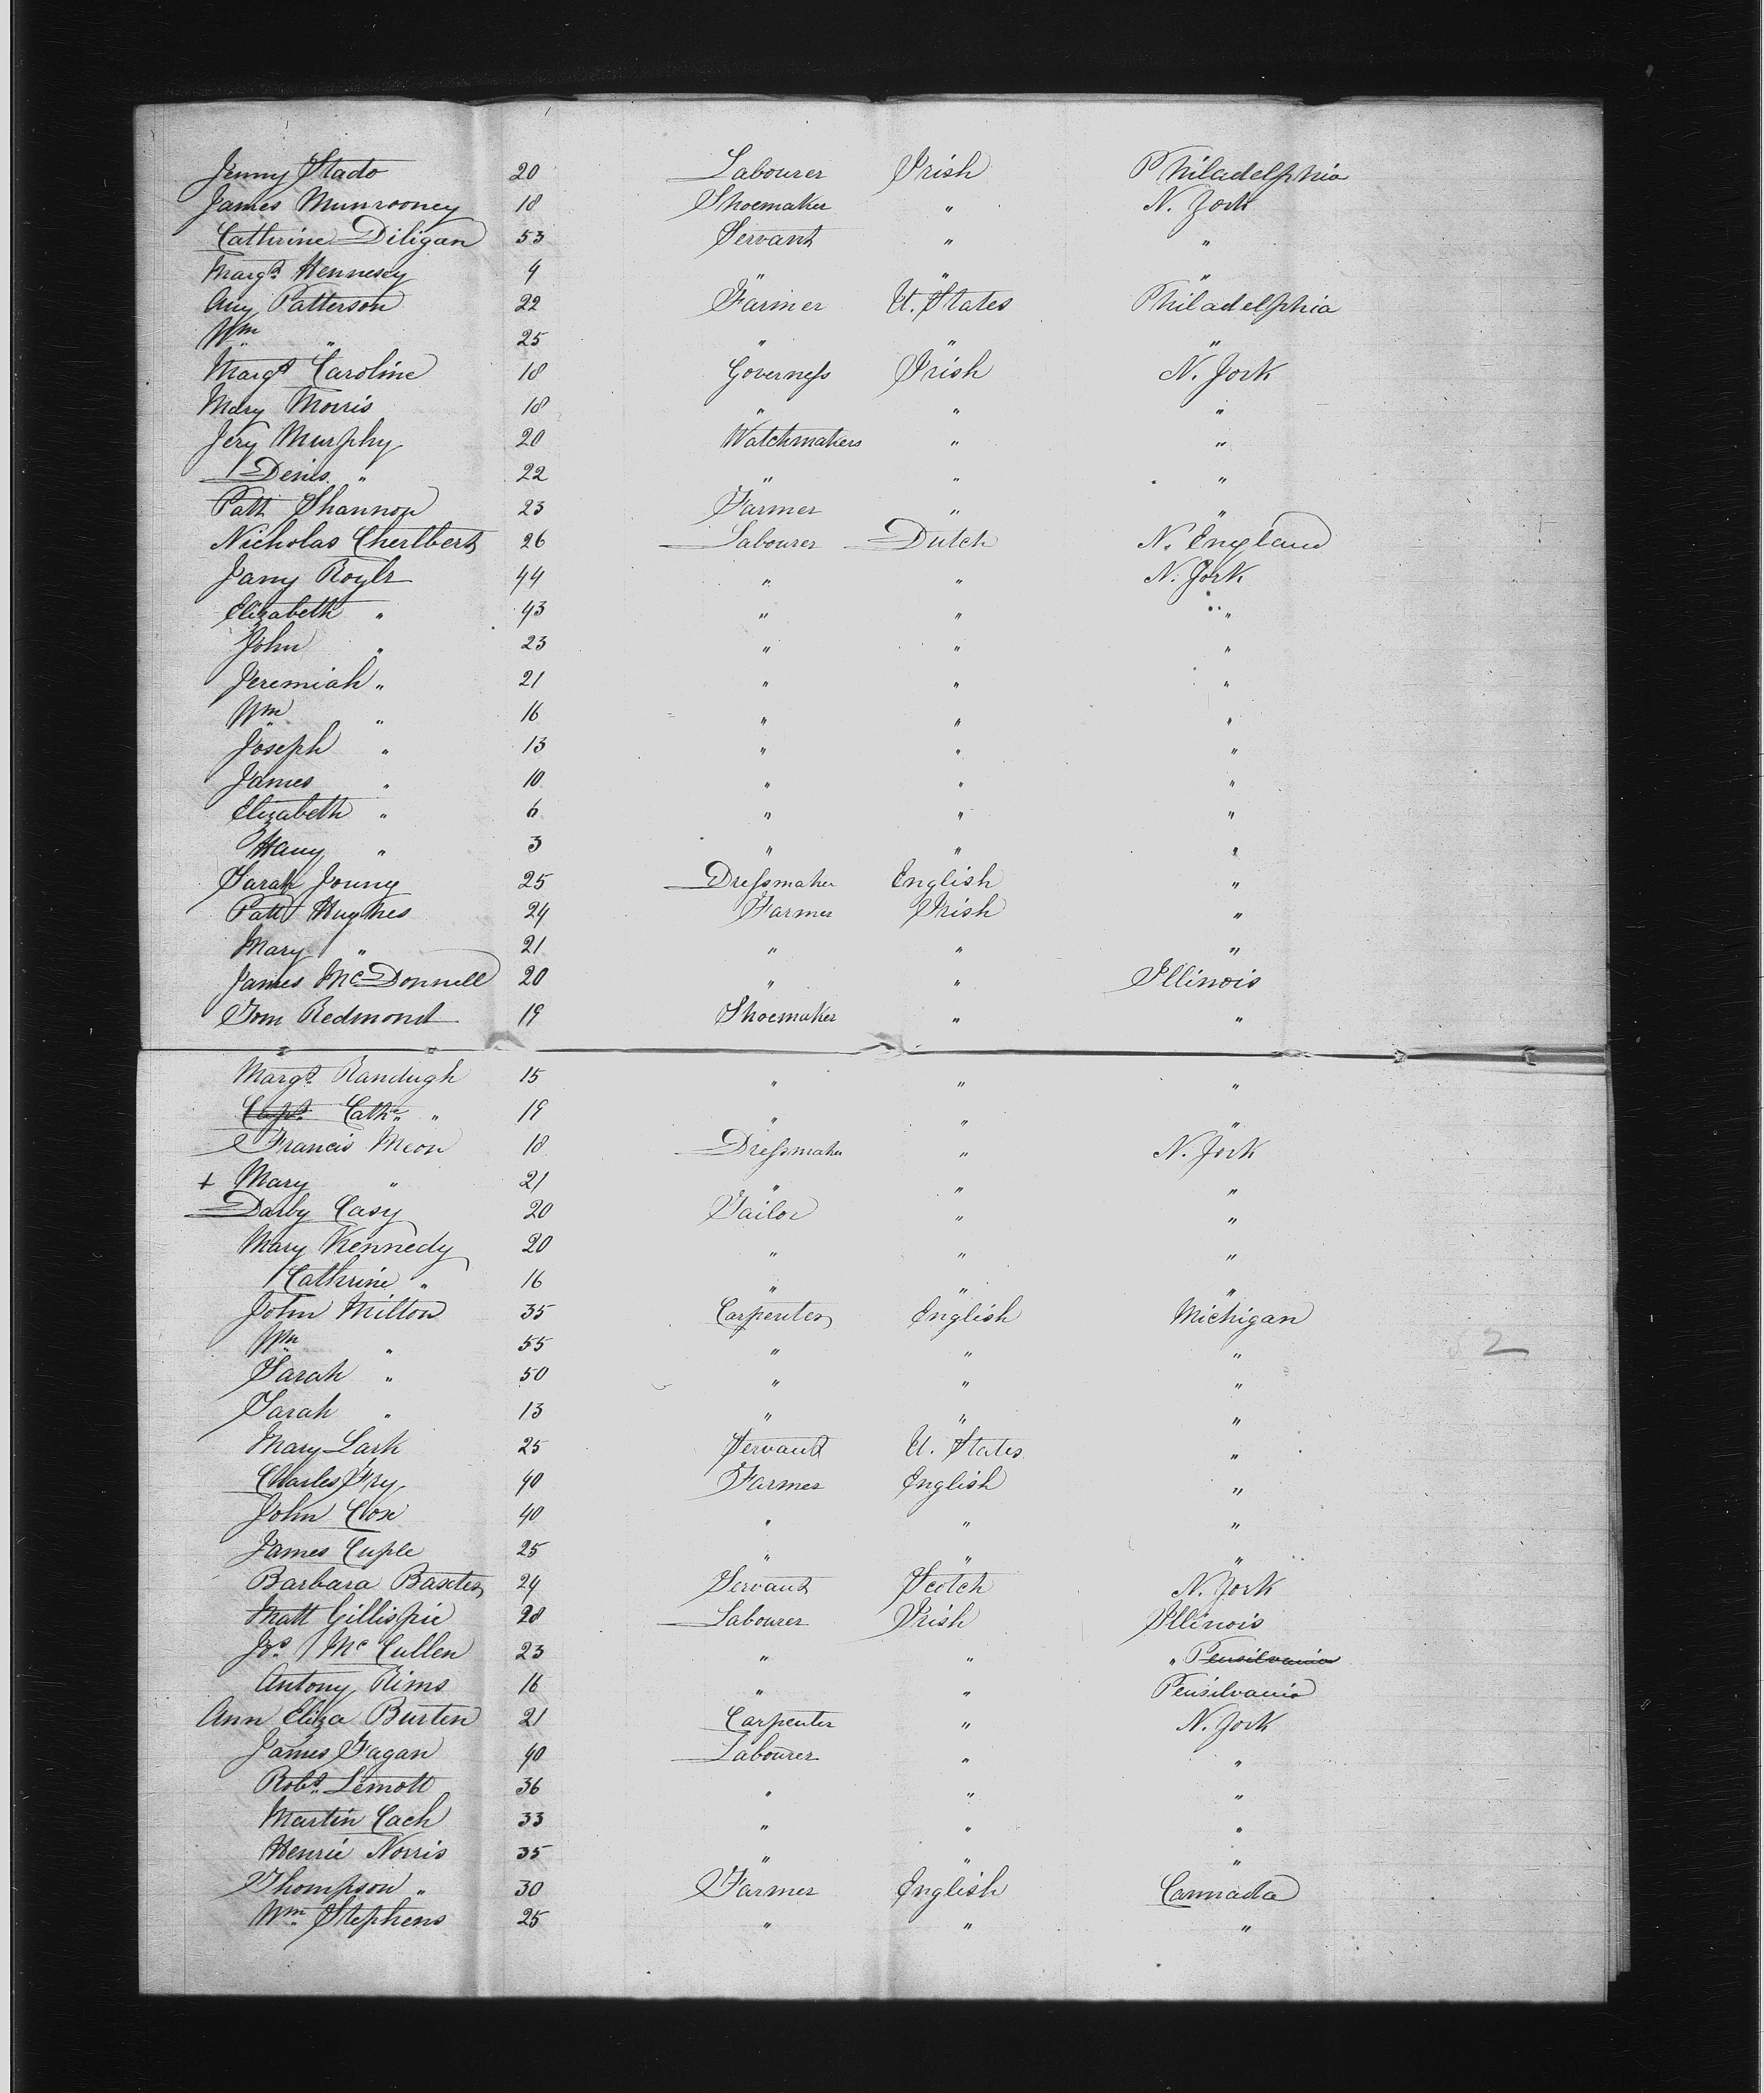 Jenny Stado 20 Labourer Irish Philadelphia
James Munrooney 18 Shoemaker " N. York
Cathrine Diligan 53 Servant " "
Margt Hennesey 4 " " "
Any Patterson 22 Farmer U. States Philadelphia
Wm " 25 " " "
Margt Caroline 18 Governess Irish N. York
Mary Morris 18 " " "
Jery Murphy 20 Watchmakers " "
Denis " 22 " " "
Patt Shannon 23 Farmer " "
Nicholas Cherlbert 26 Labourer Dutch N. England
Jany Roylr 44 " " N. York
Elizabeth " 43 " " "
John " 23 " " "
Jeremiah " 21 " " "
Wm " 16 " " "
Joseph " 13 " " "
James " 10 " " "
Elizabeth " 6 " " "
Hany " 3 " " "
Sarah Joung 25 Dressmaker English "
Patt Hughes 24 Farmer Irish "
Mary " 21 " " "
James McDonnell 20 " " Illinois
Tom Redmond 19 Shoemaker " "
Margt Randugh 15 " " "
Cathe " 19 " " "
Francis Meon 18 Dressmaker " N. York
+ Mary " 21 " " "
Darby Casy 20 Tailor " "
Mary Kennedy 20 " " "
Cathrine " 16 " " "
John Milton 35 Carpenter English Michigan
Wm " 55 " " "
2
Sarah " 50 " " "
Sarah " 13 " " "
Mary Lark 25 Servant U. States "
Charles Fry 40 Farmer English "
John Cox 40 " " "
James Cuple 25 " " "
Barbara Baxter 24 Servant Scotch N. York
Matt Gillispie 28 Labourer Irish Illinois
Jos McCullen 23 " " " Pensilvania
Antony Rims 16 " " Pensilvania
Ann Eliza Burten 21 Carpenter " N. York
James Fagan 40 Labourer " "
Robt Lemott 36 " " "
Martin Cach 33 " " "
Henrie Norris 35 " " "
Thompson " 30 Farmer English Cannada
Wm Stephens 25 " " "